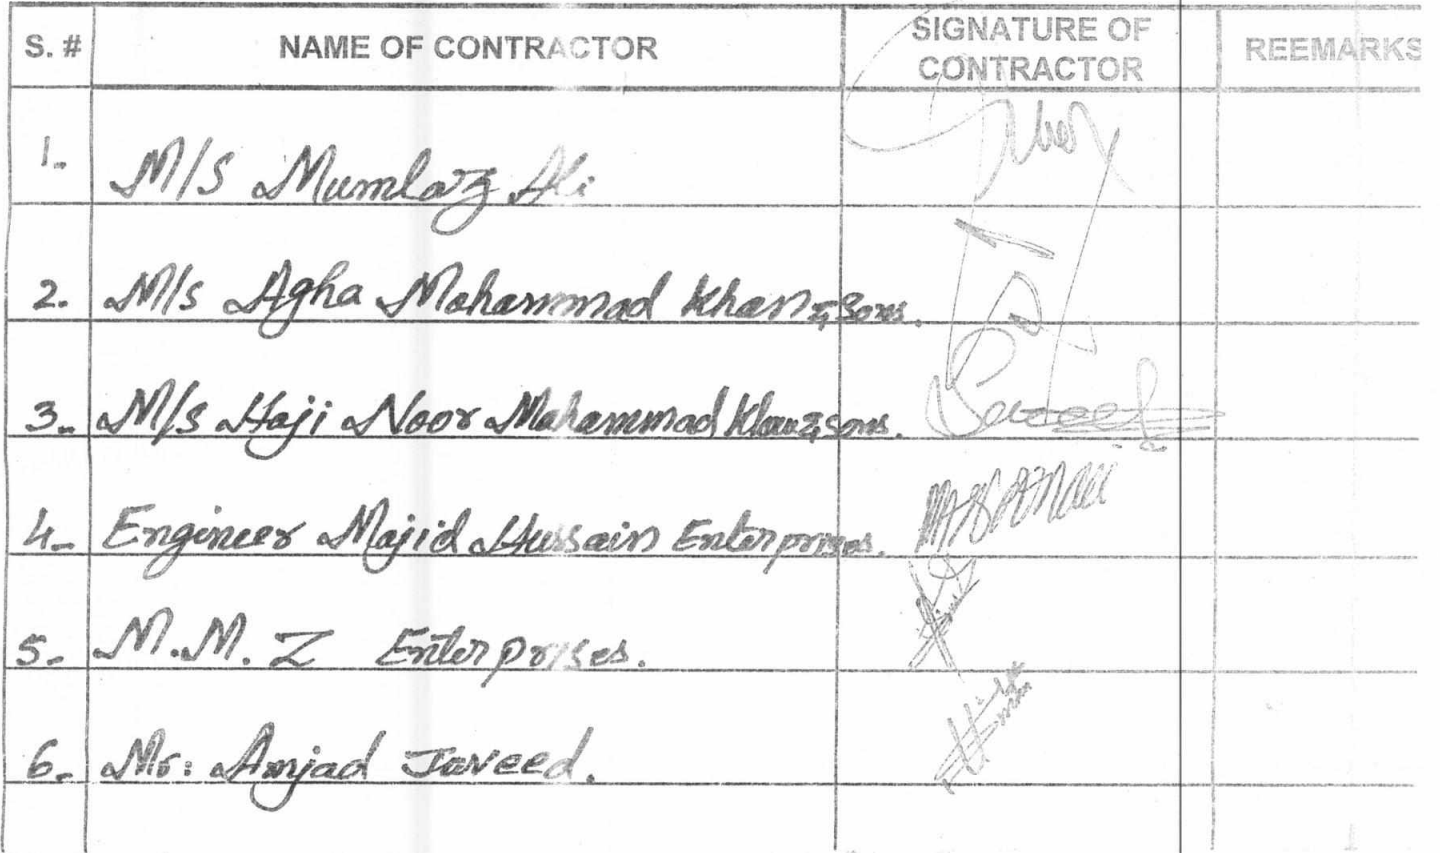 S. # NAME OF CONTRACTOR SIGNATURE OF CONTRACTOR REEMARKS
1. M/S Mumtaz Ali
2. M/s Agha Mohammad Khan & Sons.
3. M/s Haji Noor Mohammad Khan & Sons.
4. Engineer Majid Hussain Enterprises.
5. M.M.Z Enterprises.
6. Mr: Amjad Javeed.